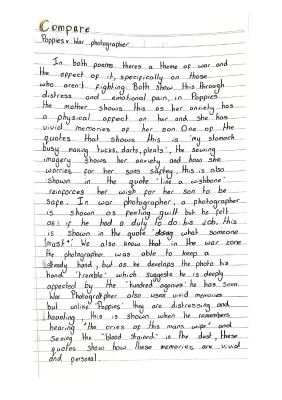 Compare
Poppies v War photographer
In both poems theres a theme of war and
the effect of it, specifically on those
who aren't fighting. Both show this through
distress and emotional pain, in Poppies
the mother shows this as her anxiety has
a physical affect on her and she has
vivid memories of her son. One of the
quotes that shows this is 'my stomach
busy making tucks, darts, pleats', the sewing
imagery shows her anxiety and how she
worries for her sons saftey, this is also
shown in the quote 'like a wishbone'
reinforces her wish for her son to be
safe. In war photographer, a photographer
is shown as feeling guilt but he felt
as if he had a duty to do his job, this
is shown in the quote doing what someone
must". We also know that in the war zone
the photographer was able to keep a
steady hand, but as he develops the photo his
hand 'tremble' which suggests he is deeply
affected by the 'hundred agonies' he has seen.
War Photographer also uses vivid memories
but unlike 'Poppies' they are distressing and
haunting, this is shown when he remembers
hearing 'the cries of this mans wife' and
seeing the 'blood stained' in the dust, these
quotes show how these memories are vivid
and personal.